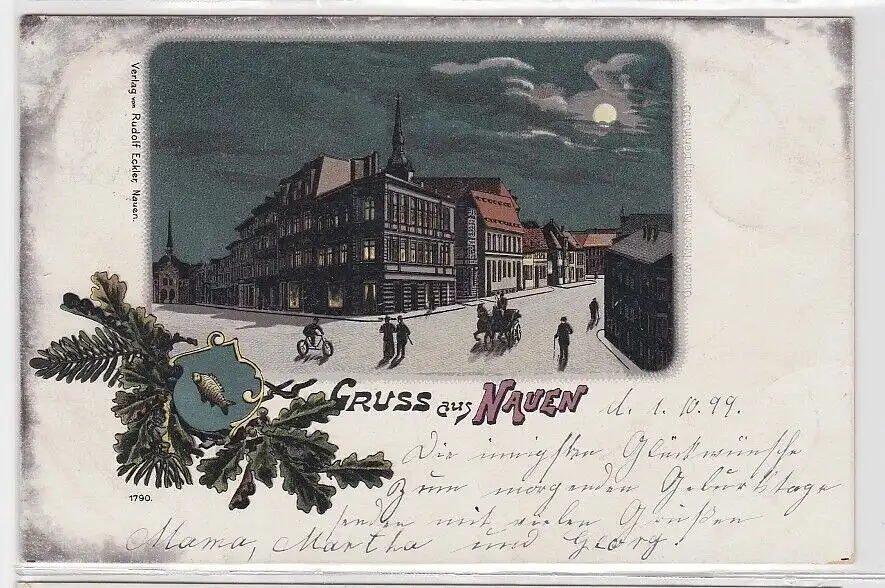 Verlag von Rudolf Eckler, Nauen.
GRUSS aus NAUEN d. 1.10.99.
Die innigsten Glückwünsche
Zum morgenden Geburtstage
senden mit vielen Grüßen
Mama, Martha und Georg.
1790.